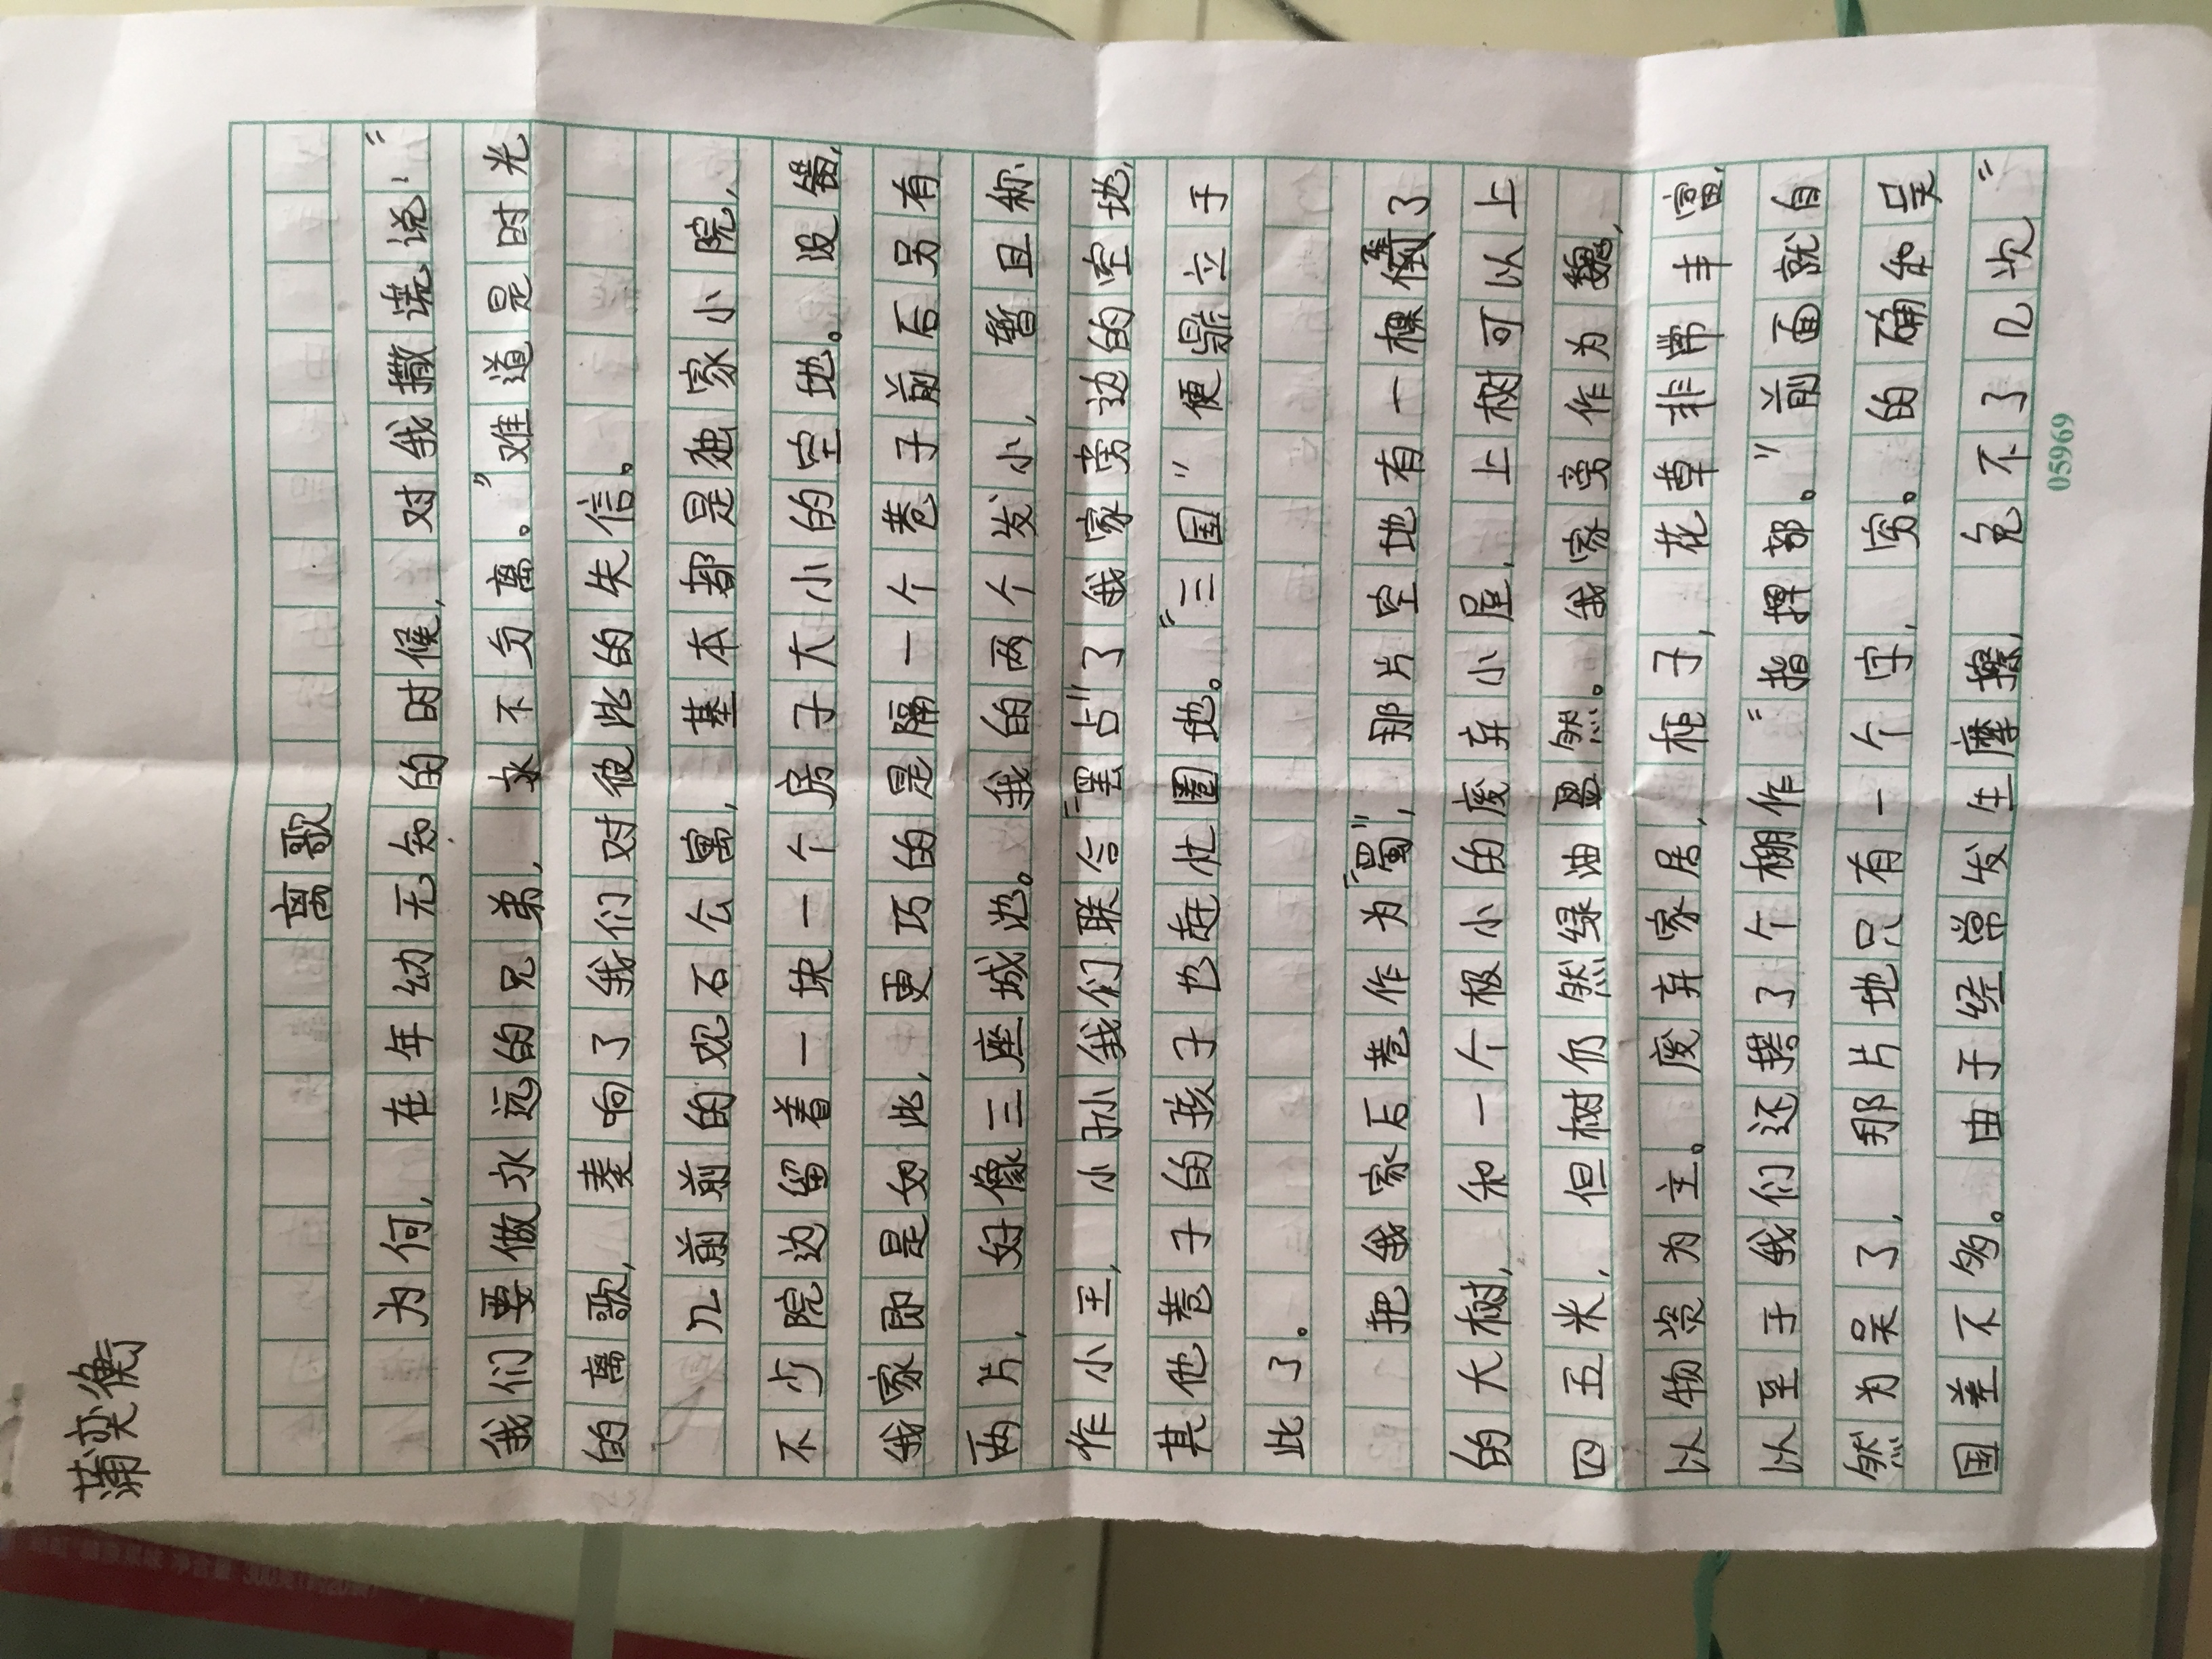 蒲奕衡
离歌
为何，在年幼无知的时候，对我撒谎说："
我们要做永远的兄弟，永不分离。"难道是时光
的离歌，奏响了我们对彼此的失信。
几前前的观石公寓，基本都是独家小院，
不少院边留着一块一个房子大小的空地。没错，
我家即是如此，更巧的是隔一个巷子前后另有
两片，好像三座城池。我的两个发小，暂且称
作小王，小孙我们联合"霸占"了我家旁边的空地，
其他巷子的孩子也赶忙圈地。"三国"便鼎立于
此了。
把我家后巷作为"蜀"，那片空地有一棵倒了
的大树，和一个极小的废弃小屋，上树可以上
四五米，但树仍然绿油盈然。我家旁作为魏，
以物资为主。废弃家居，柜子，花草非常丰富，
以至于我们还搭了个棚作"指挥部。"前面就自
然为吴了，那片地只有一个字，穷。的确和吴
国差不多。由于经常发生摩擦，免不了几次"
05969